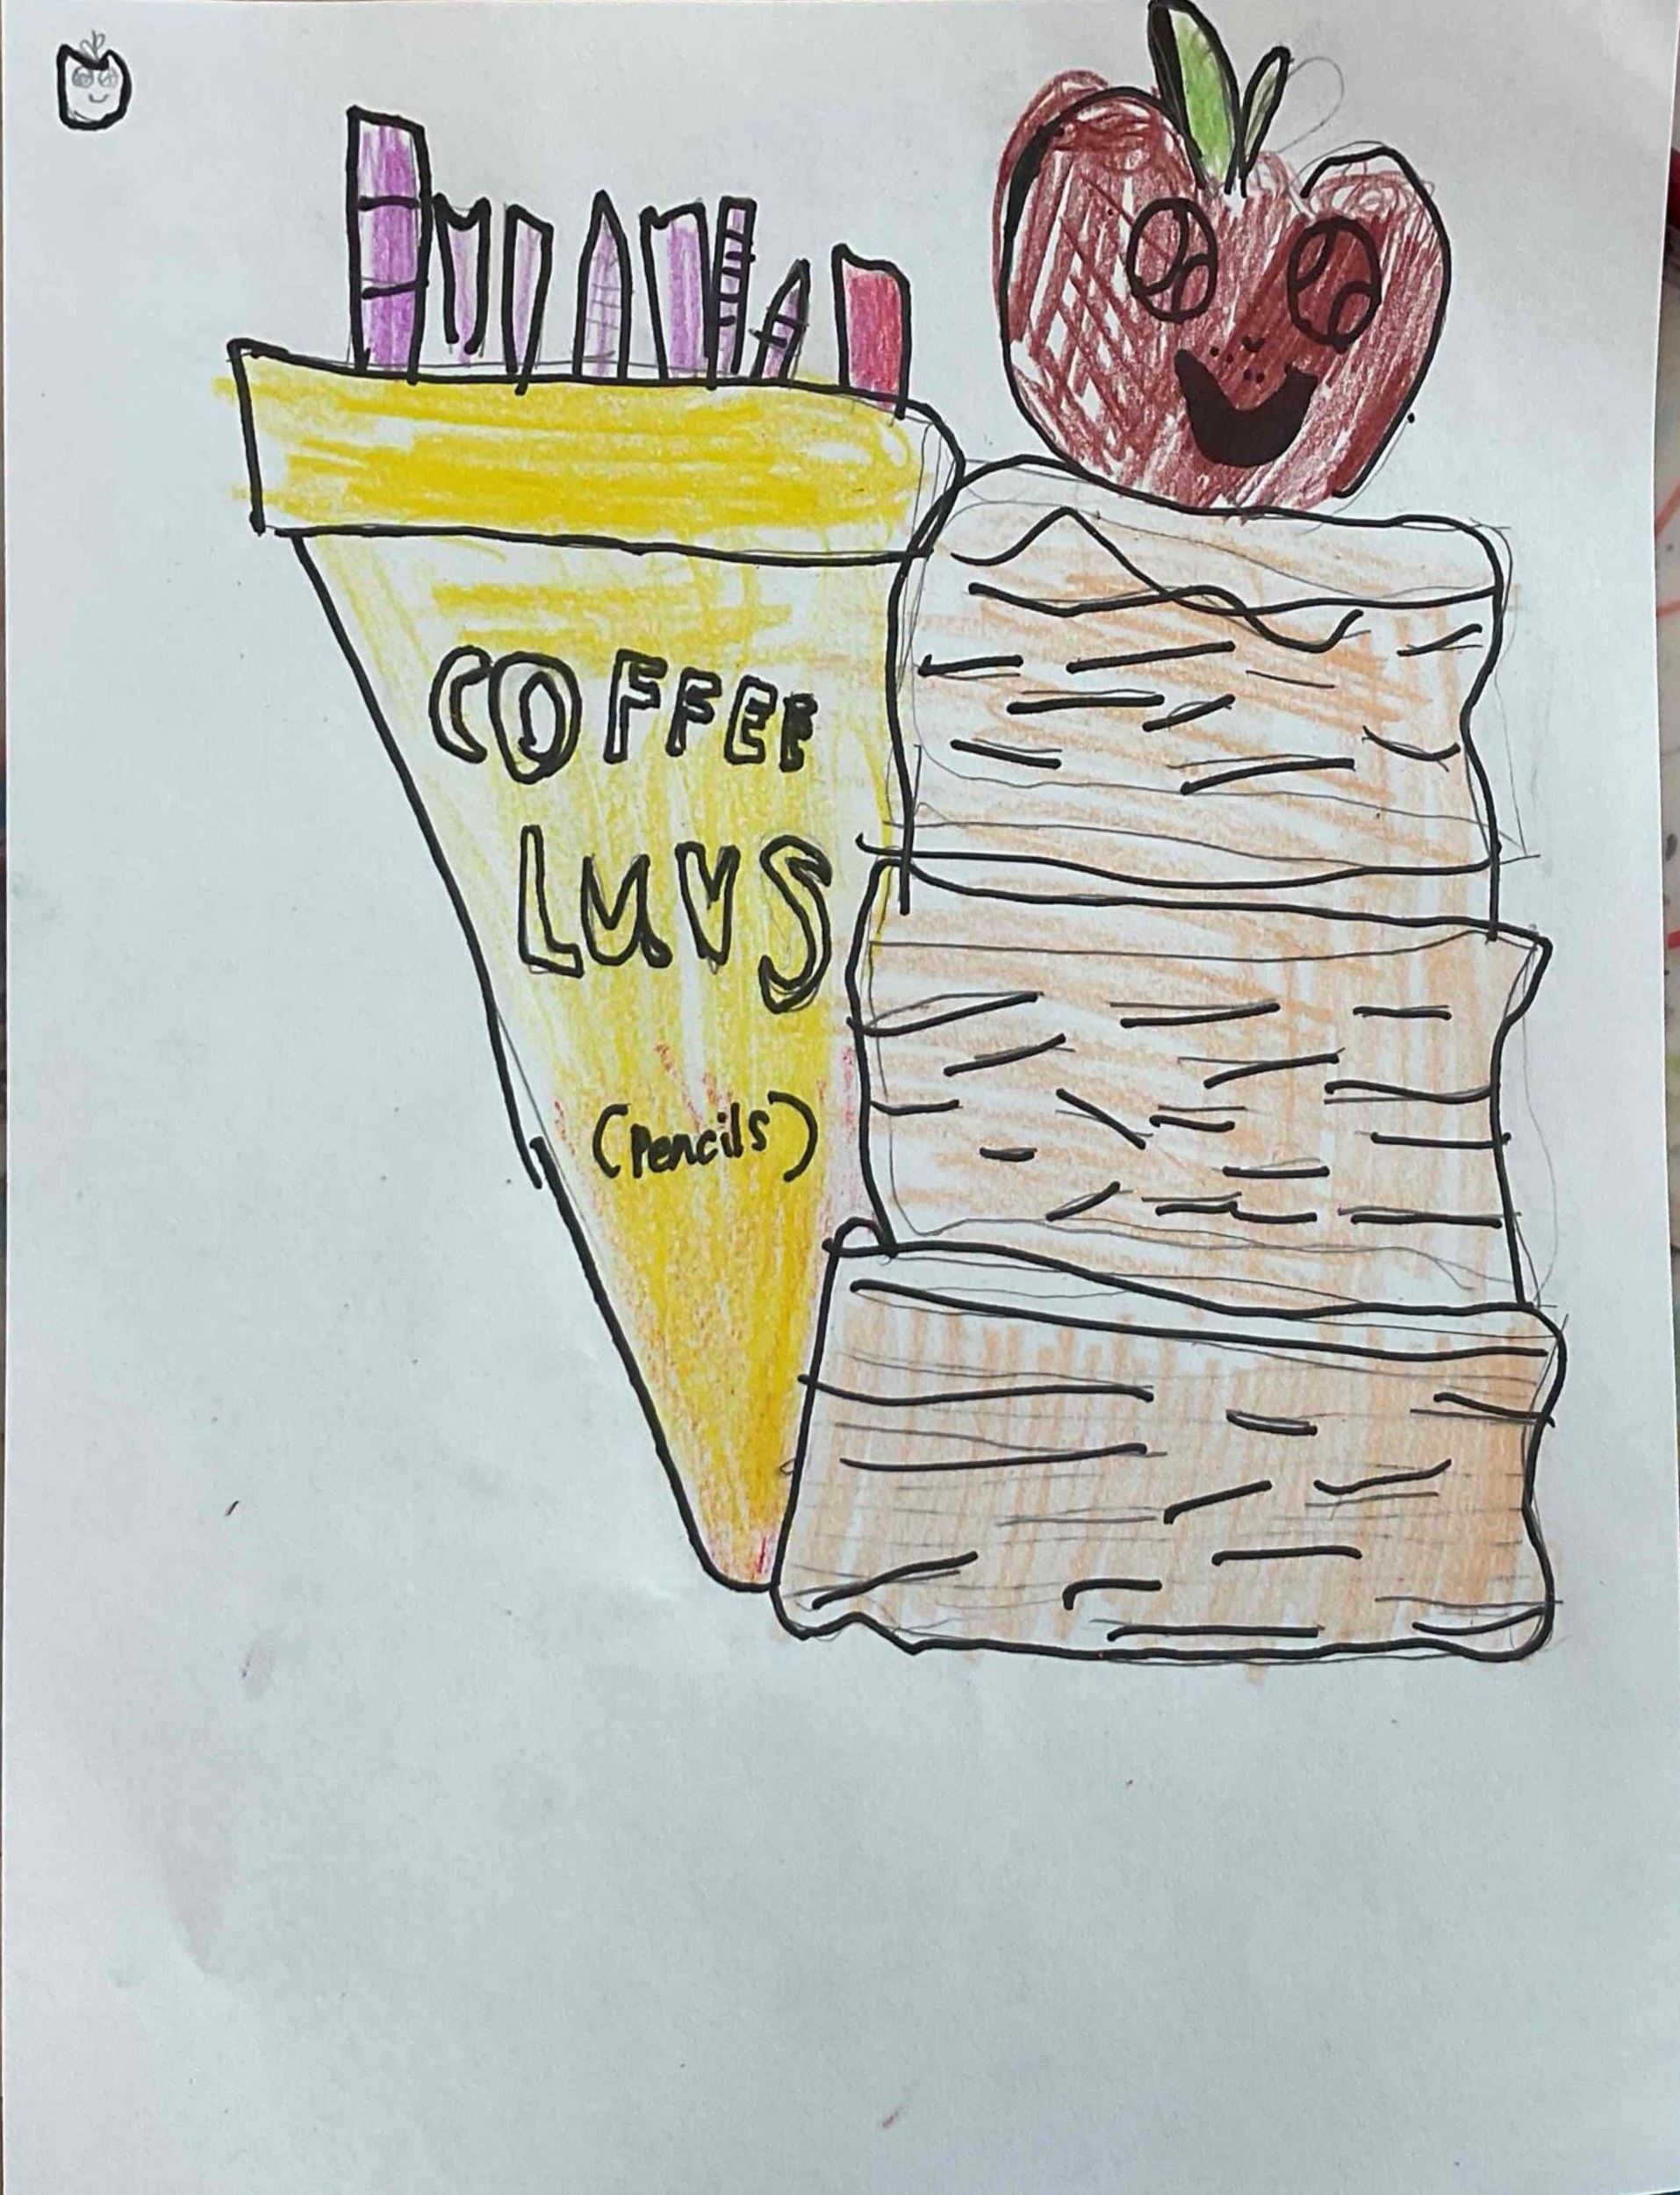 COFFEE
LUVS
(Pencils)